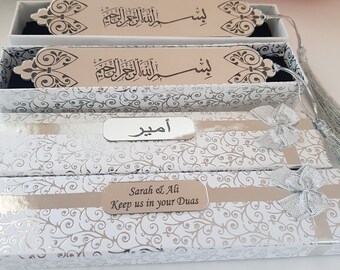 بسم الله الرحمن الرحيم
بسم الله الرحمن الرحيم
أمير
Sarah & Ali
Keep us in your Duas